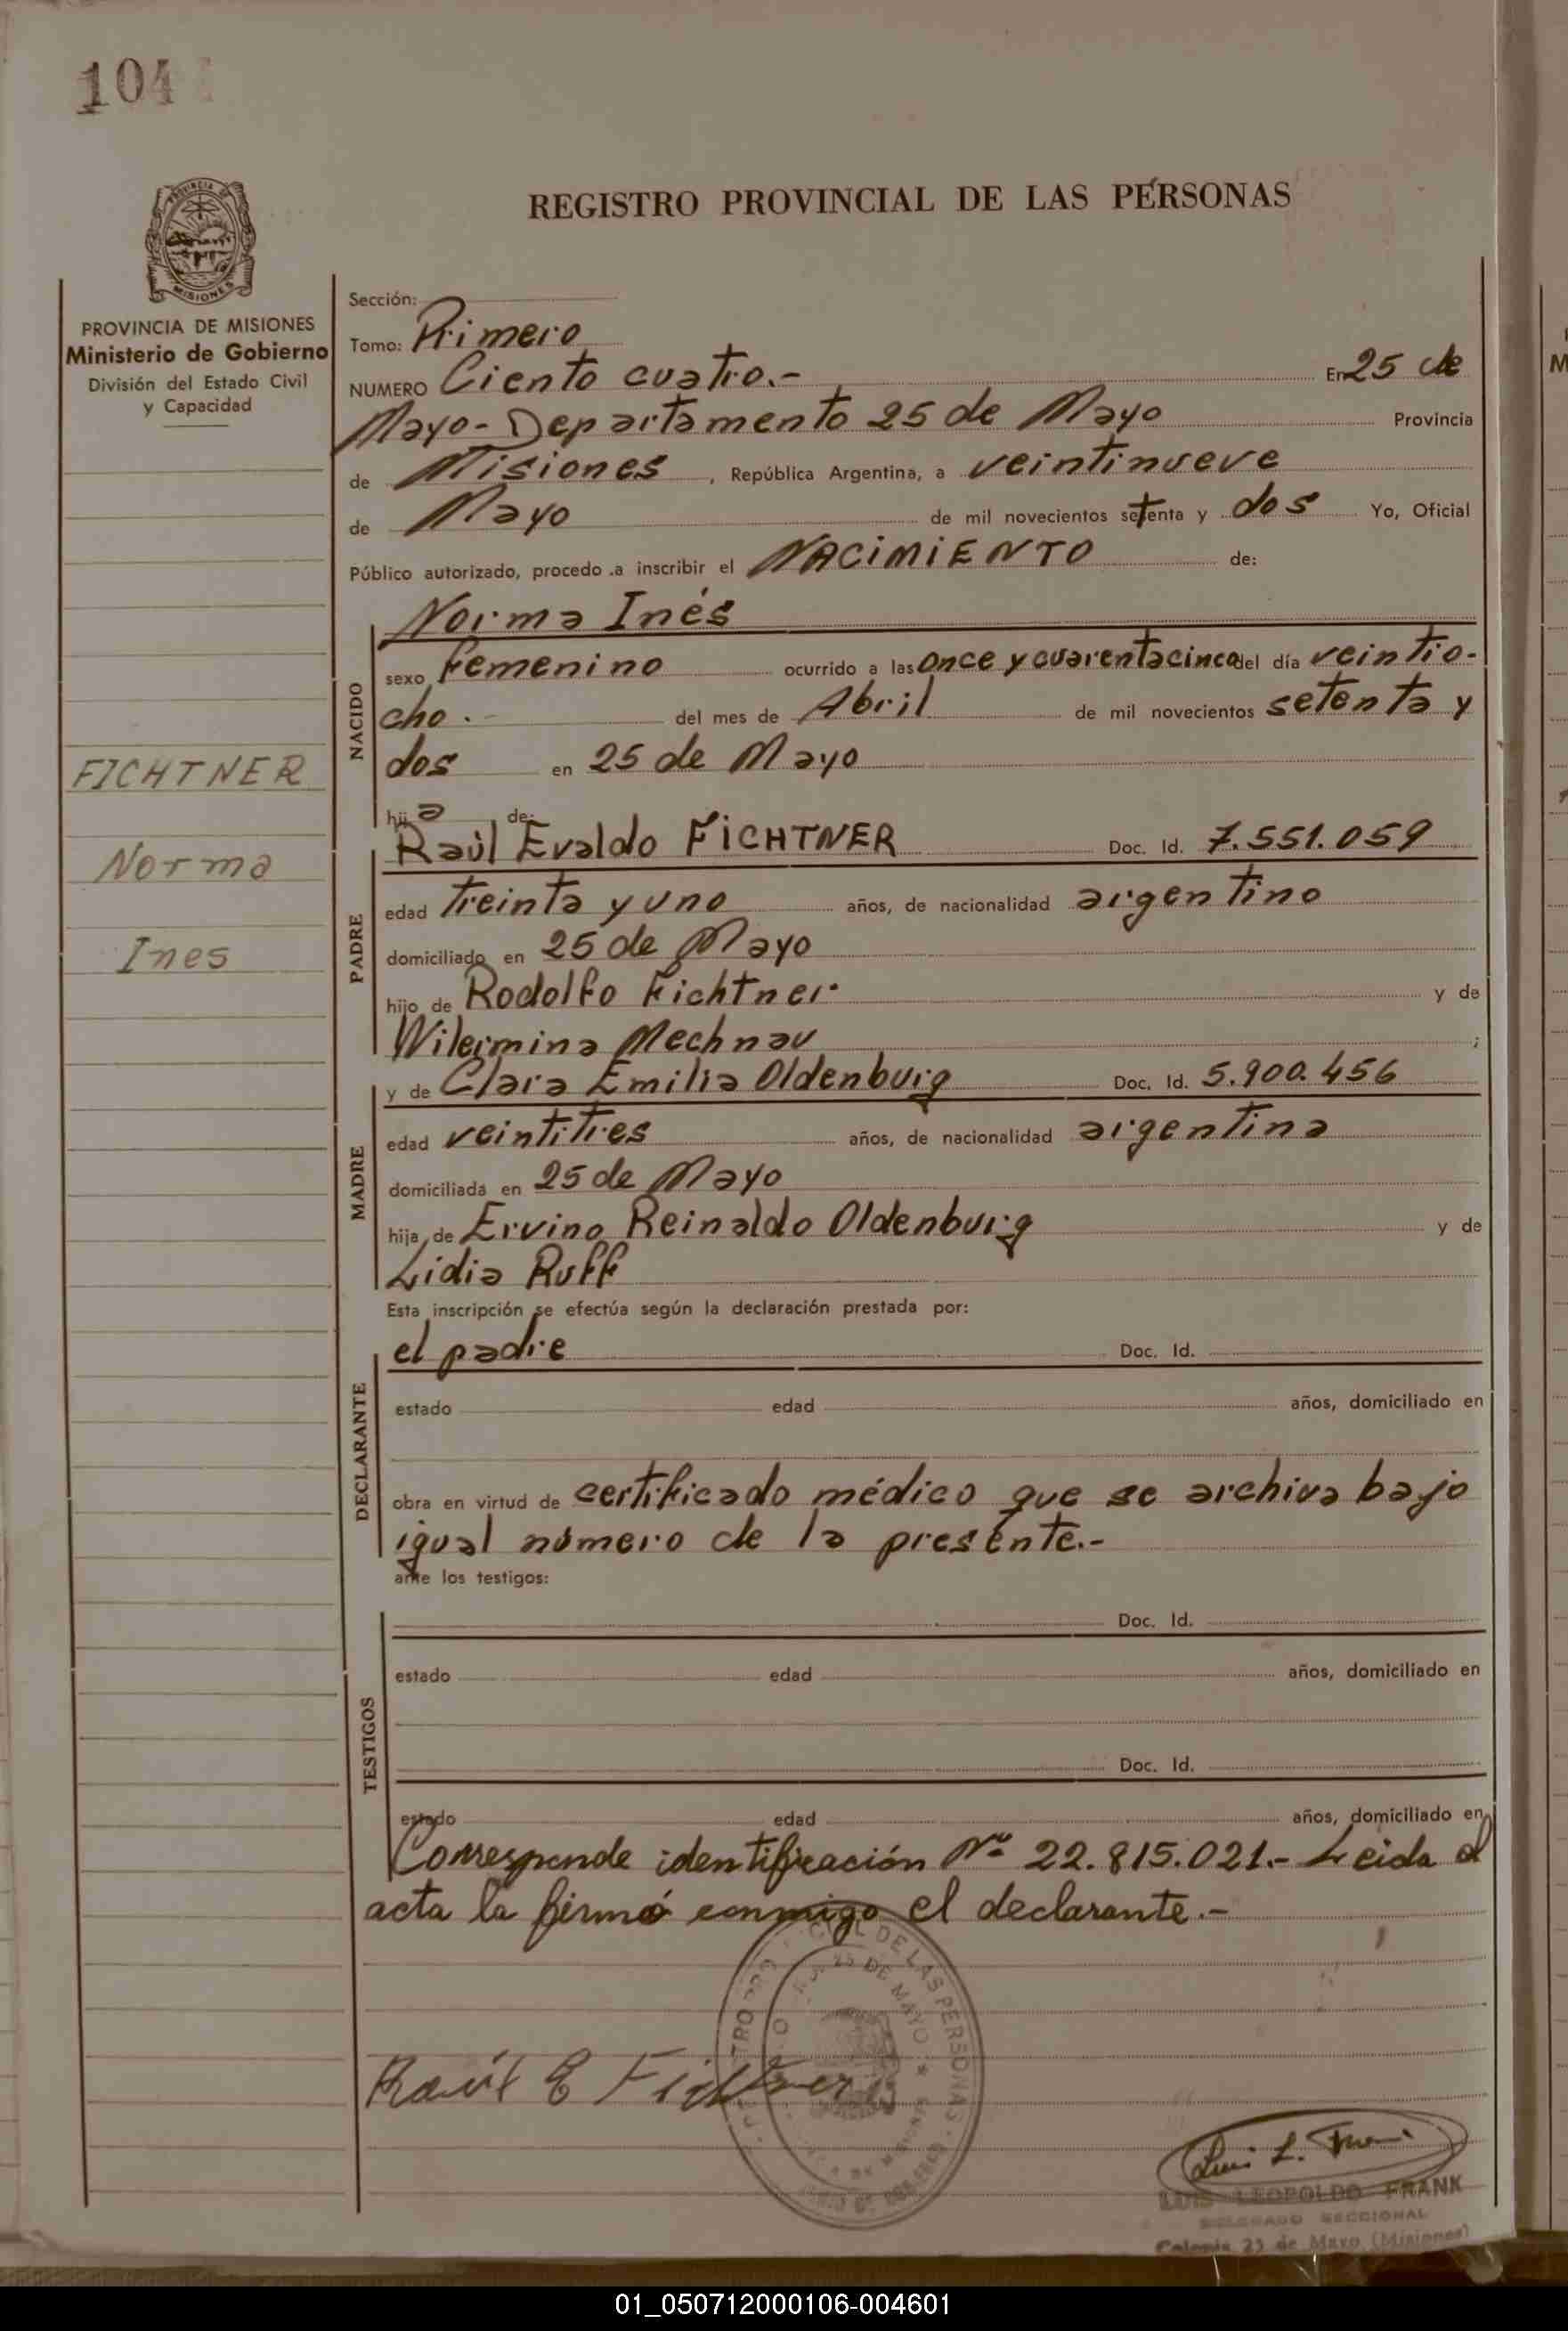 104
REGISTRO PROVINCIAL DE LAS PERSONAS
MISIONES
PROVINCIA DE MISIONES
Ministerio de Gobierno
División del Estado Civil
y Capacidad
FICHTNER
Norma
Ines
Sección:
Tomo: Primero
NUMERO Ciento cuatro.- En 25 de
Mayo- Departamento 25 de Mayo Provincia
de Misiones, República Argentina, a veintinueve
de Mayo de mil novecientos setenta y dos Yo, Oficial
Público autorizado, procedo a inscribir el NACIMIENTO de:
Norma Inés
NACIDO
sexo femenino ocurrido a las once y cuarentacinco del día veintio-
cho.- del mes de Abril de mil novecientos setenta y
dos en 25 de Mayo
hija de:
Raúl Evaldo FICHTNER Doc. Id. 7.551.059
PADRE
edad treinta y uno años, de nacionalidad argentino
domiciliado en 25 de Mayo
hijo de Rodolfo Fichtner y de
Wilermina Mechnau ;
y de Clara Emilia Oldenburg Doc. Id. 5.900.456
MADRE
edad veintitres años, de nacionalidad argentina
domiciliada en 25 de Mayo
hija de Ervino Reinaldo Oldenburg y de
Lidia Ruff
Esta inscripción se efectúa según la declaración prestada por:
el padre Doc. Id.
DECLARANTE
estado edad años, domiciliado en
obra en virtud de certificado médico que se archiva bajo
igual número de la presente.-
ante los testigos:
Doc. Id.
TESTIGOS
estado edad años, domiciliado en
Doc. Id.
estado edad años, domiciliado en
Corresponde identificación Nº 22.815.021.- Leida el
acta la firmó conmigo el declarante.-
CIVIL DE LAS PERSONAS
25 DE MAYO
Raúl E Fichtner
LUIS LEOPOLDO FRANK
DELEGADO SECCIONAL
Colonia 25 de Mayo (Misiones)
01_050712000106-004601